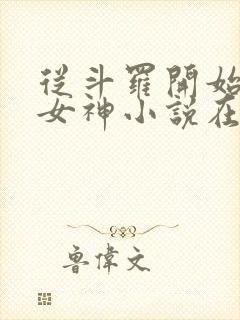 從斗羅開始
女神小說在
魯偉文